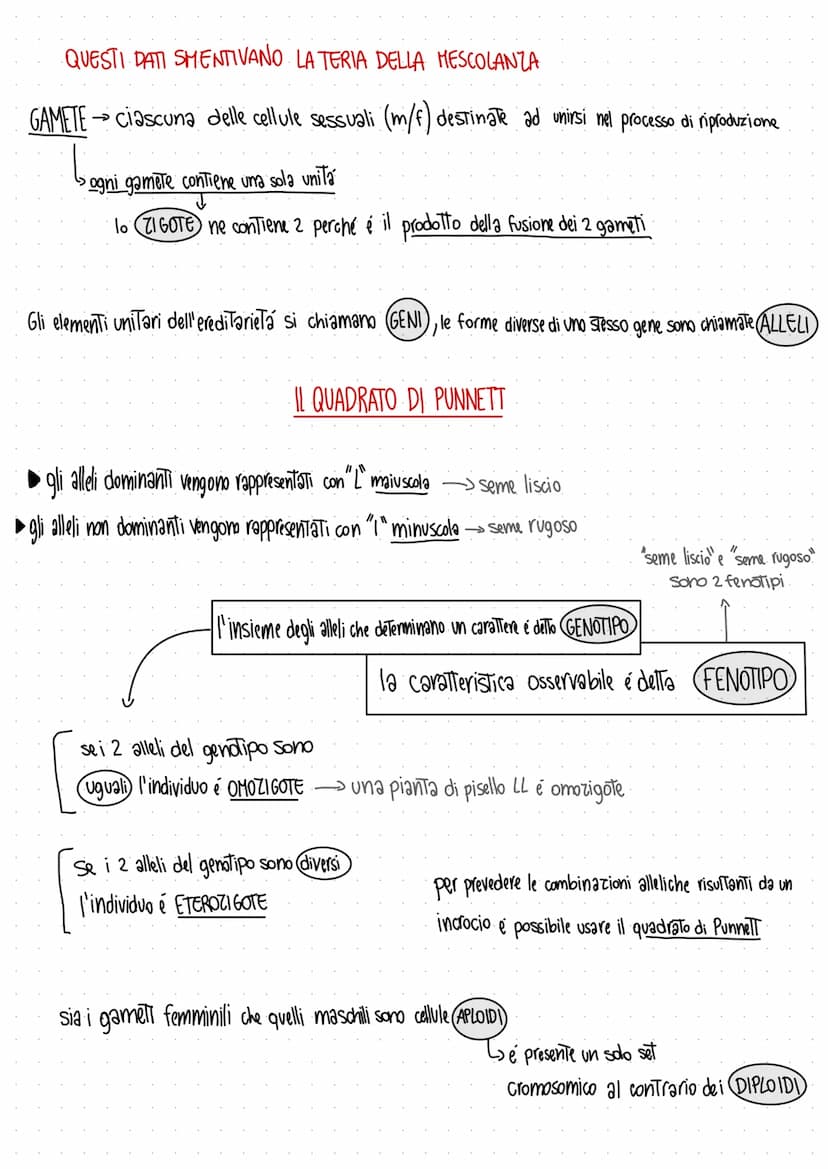 QUESTI DATI SMENTIVANO LA TERIA DELLA MESCOLANZA
GAMETE → ciascuna delle cellule sessuali (m/f) destinate ad unirsi nel processo di riproduzione
↳ ogni gamete contiene una sola unitá
↓
lo ZIGOTE ne contiene 2 perché é il prodotto della fusione dei 2 gameti
Gli elementi unitari dell'ereditarietá si chiamano GENI, le forme diverse di uno stesso gene sono chiamate ALLELI
IL QUADRATO DI PUNNETT
▶ gli alleli dominanti vengono rappresentati con "L" maiuscola → seme liscio
▶ gli alleli non dominanti vengono rappresentati con "l" minuscola → seme rugoso
"seme liscio" e "seme rugoso"
sono 2 fenotipi
l'insieme degli alleli che determinano un carattere é detto GENOTIPO
la caratteristica osservabile é detta FENOTIPO
se i 2 alleli del genotipo sono
uguali l'individuo é OMOZIGOTE → una pianta di pisello LL é omozigote
Se i 2 alleli del genotipo sono diversi
l'individuo é ETEROZIGOTE
per prevedere le combinazioni alleliche risultanti da un
incrocio é possibile usare il quadrato di Punnett
sia i gameti femminili che quelli maschili sono cellule APLOIDI
↳ é presente un solo set
cromosomico al contrario dei DIPLOIDI